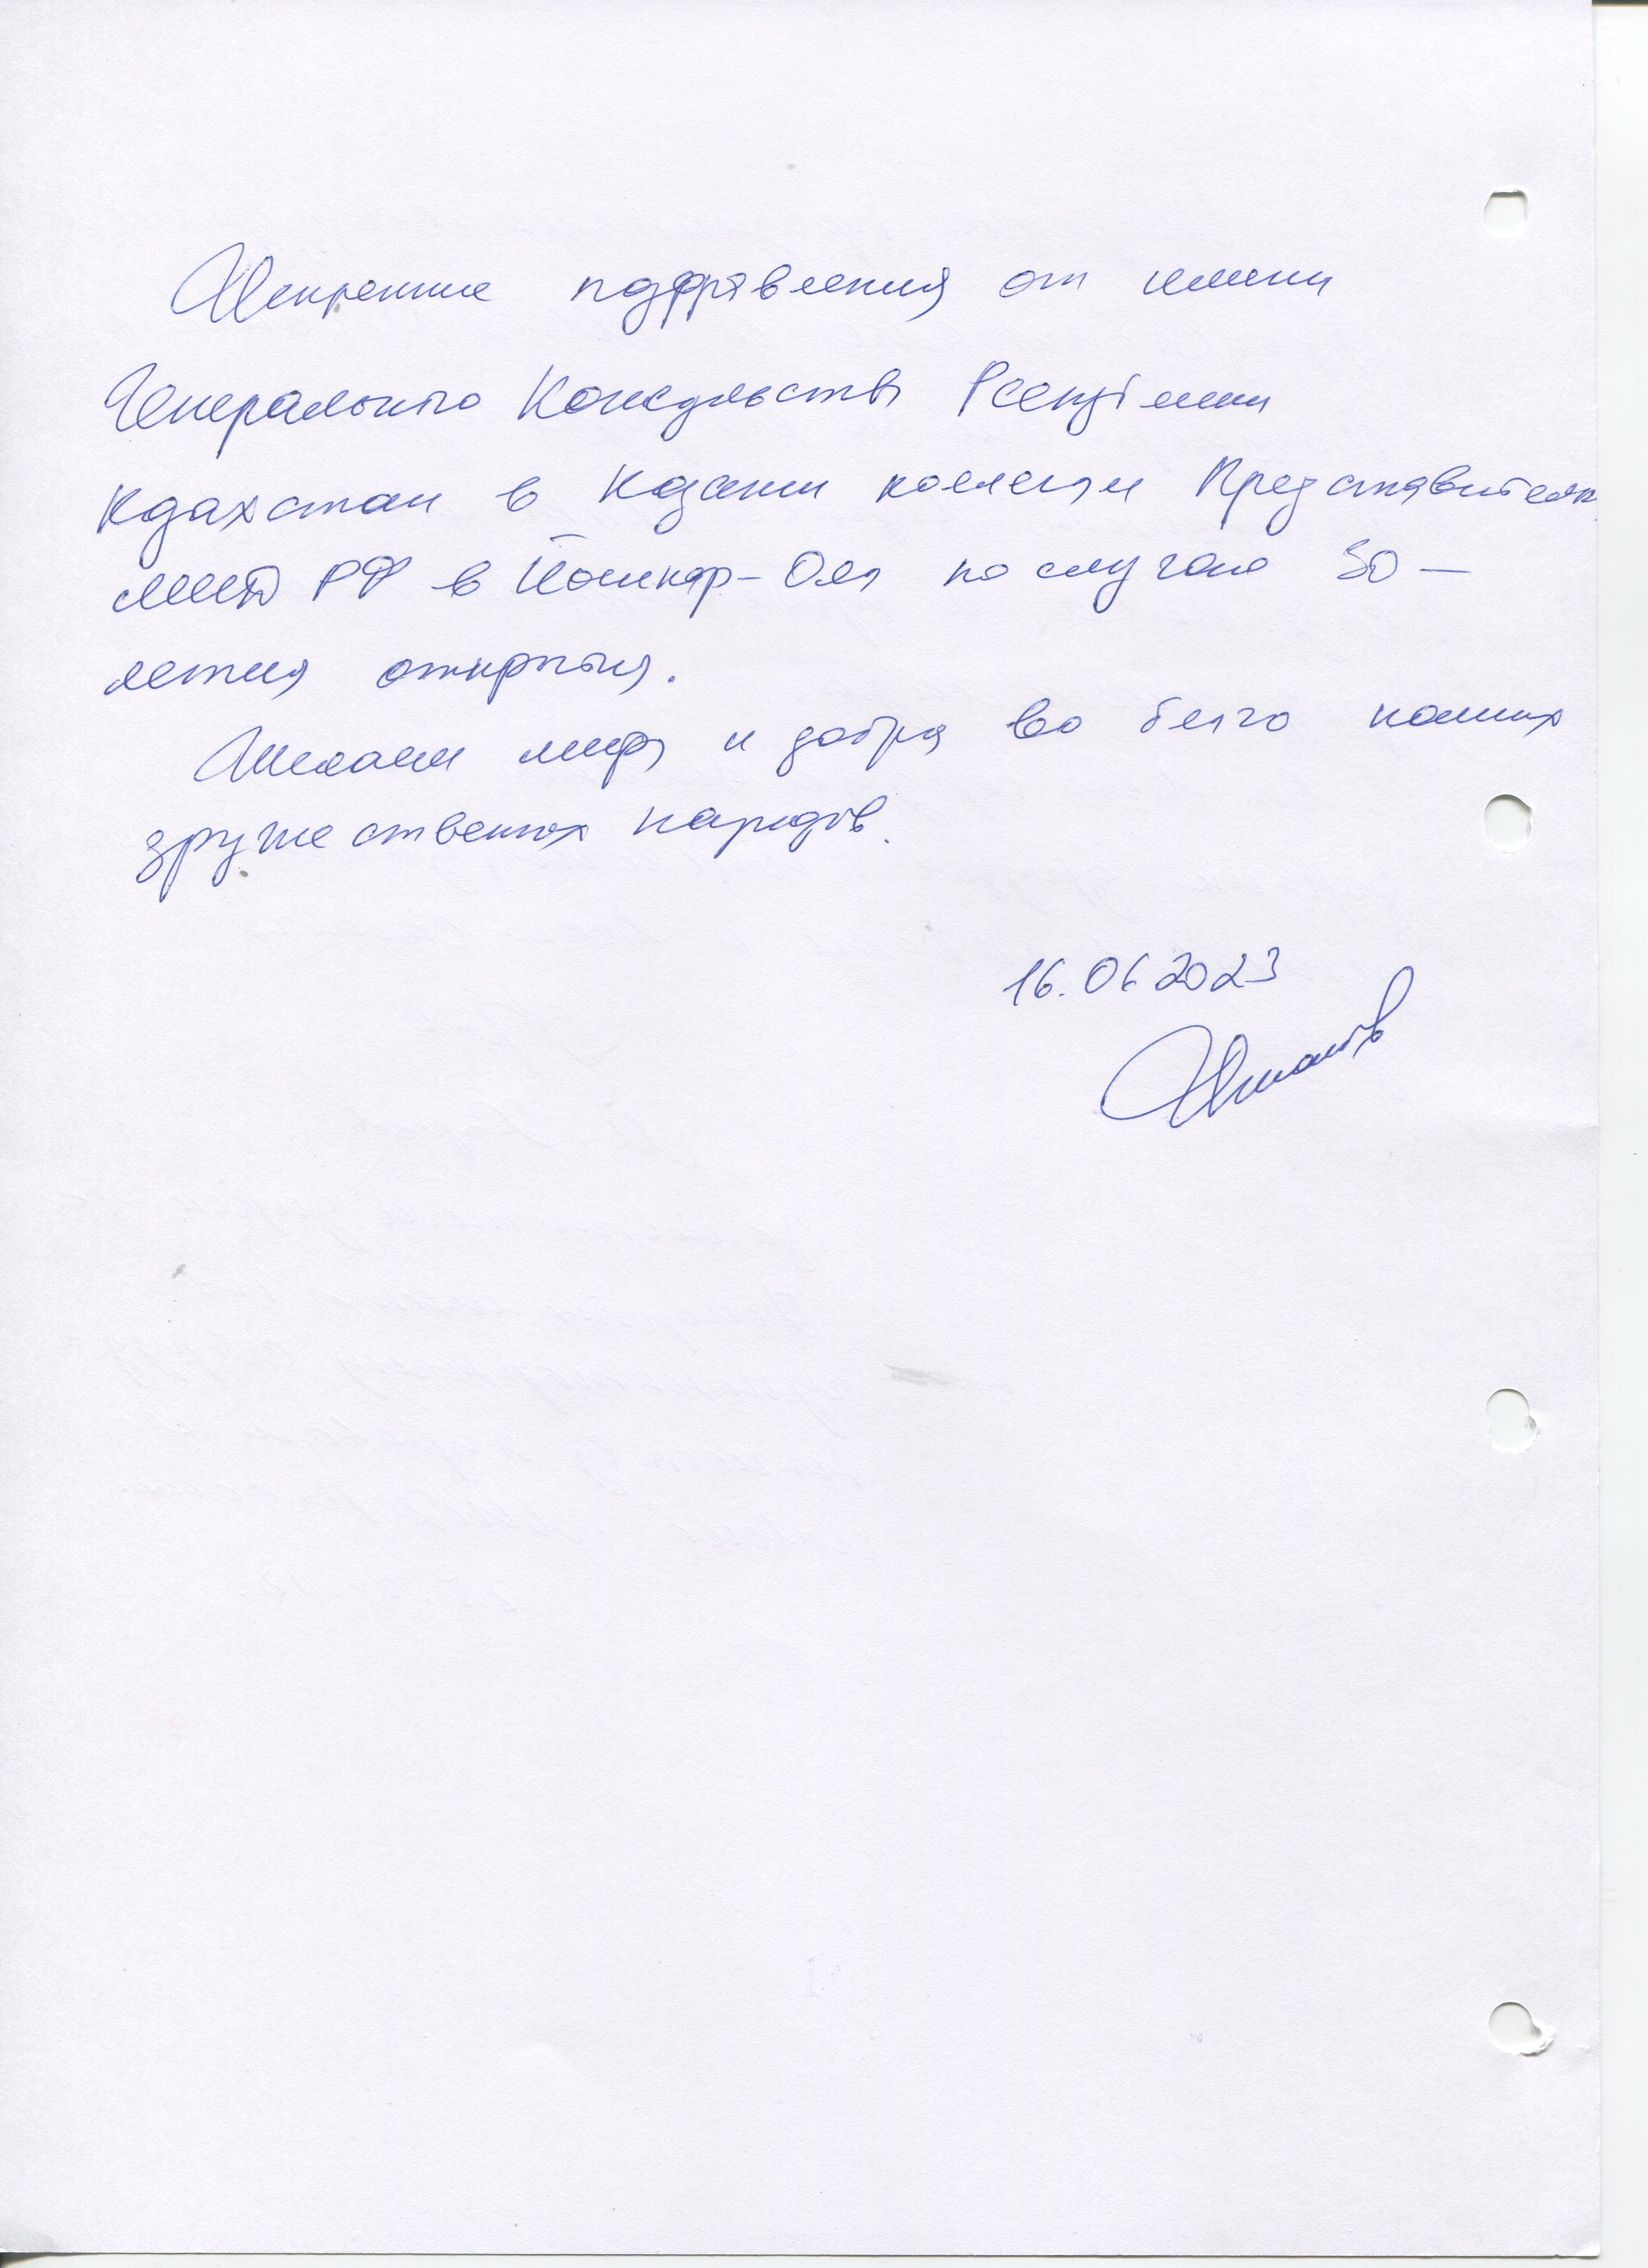 Искренние поздравления от имени
Генерального Консульства Республики
Казахстан в Казани коллегам Представительства
МИД РФ в Йошкар-Оле по случаю 30-
летия открытия.
Желаем мира и добра во благо наших
дружественных народов.
16.06.2023